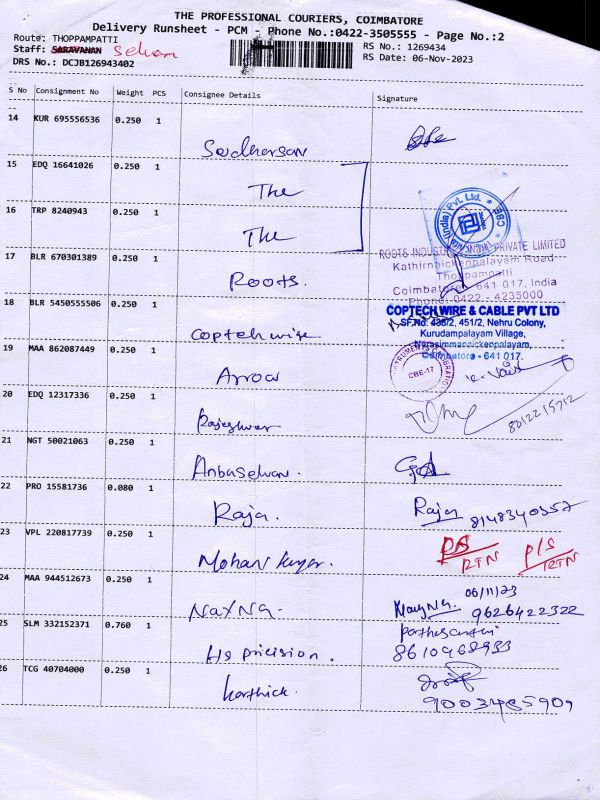 THE PROFESSIONAL COURIERS, COIMBATORE
Delivery Runsheet - PCM - Phone No.:0422-3505555 - Page No.:2
Route: THOPPAMPATTI RS No.: 1269434
Staff: SARAVANAN Selvam RS Date: 06-Nov-2023
DRS No.: DCJB126943402
S No Consignment No Weight PCS Consignee Details Signature
14 KUR 695556536 0.250 1
Sudharsan
15 EDQ 16641026 0.250 1
The
16 TRP 8240943 0.250 1
The
(India) Pvt. Ltd.
ROOTS INDUSTRIES INDIA PRIVATE LIMITED
Kathirnaickenpalayam Road
Thoppampatti
Coimbatore - 641 017, India
Phone: 0422 - 4235000
17 BLR 670301389 0.250 1
Roots.
18 BLR 5450555506 0.250 1
Coptech wire
COPTECH WIRE & CABLE PVT LTD
SF.No: 436/2, 451/2, Nehru Colony,
Kurudampalayam Village,
Narasimmanaickenpalayam,
Coimbatore - 641 017.
19 MAA 862087449 0.250 1
Arrow
CBE-17
20 EDQ 12317336 0.250 1
Rajeshwar
8012215712
21 NGT 50021063 0.250 1
Anbuselvan.
22 PRO 15581736 0.080 1
Raja. Raja 8148340357
23 VPL 220817739 0.250 1
Mohan kumar. D/S RTN D/S RTN
24 MAA 944512673 0.250 1
NaXNa. 06/11/23
9626422322
25 SLM 332152371 0.760 1
HS precision. 8610968933
26 TCG 40704000 0.250 1
karthick. 9003485909